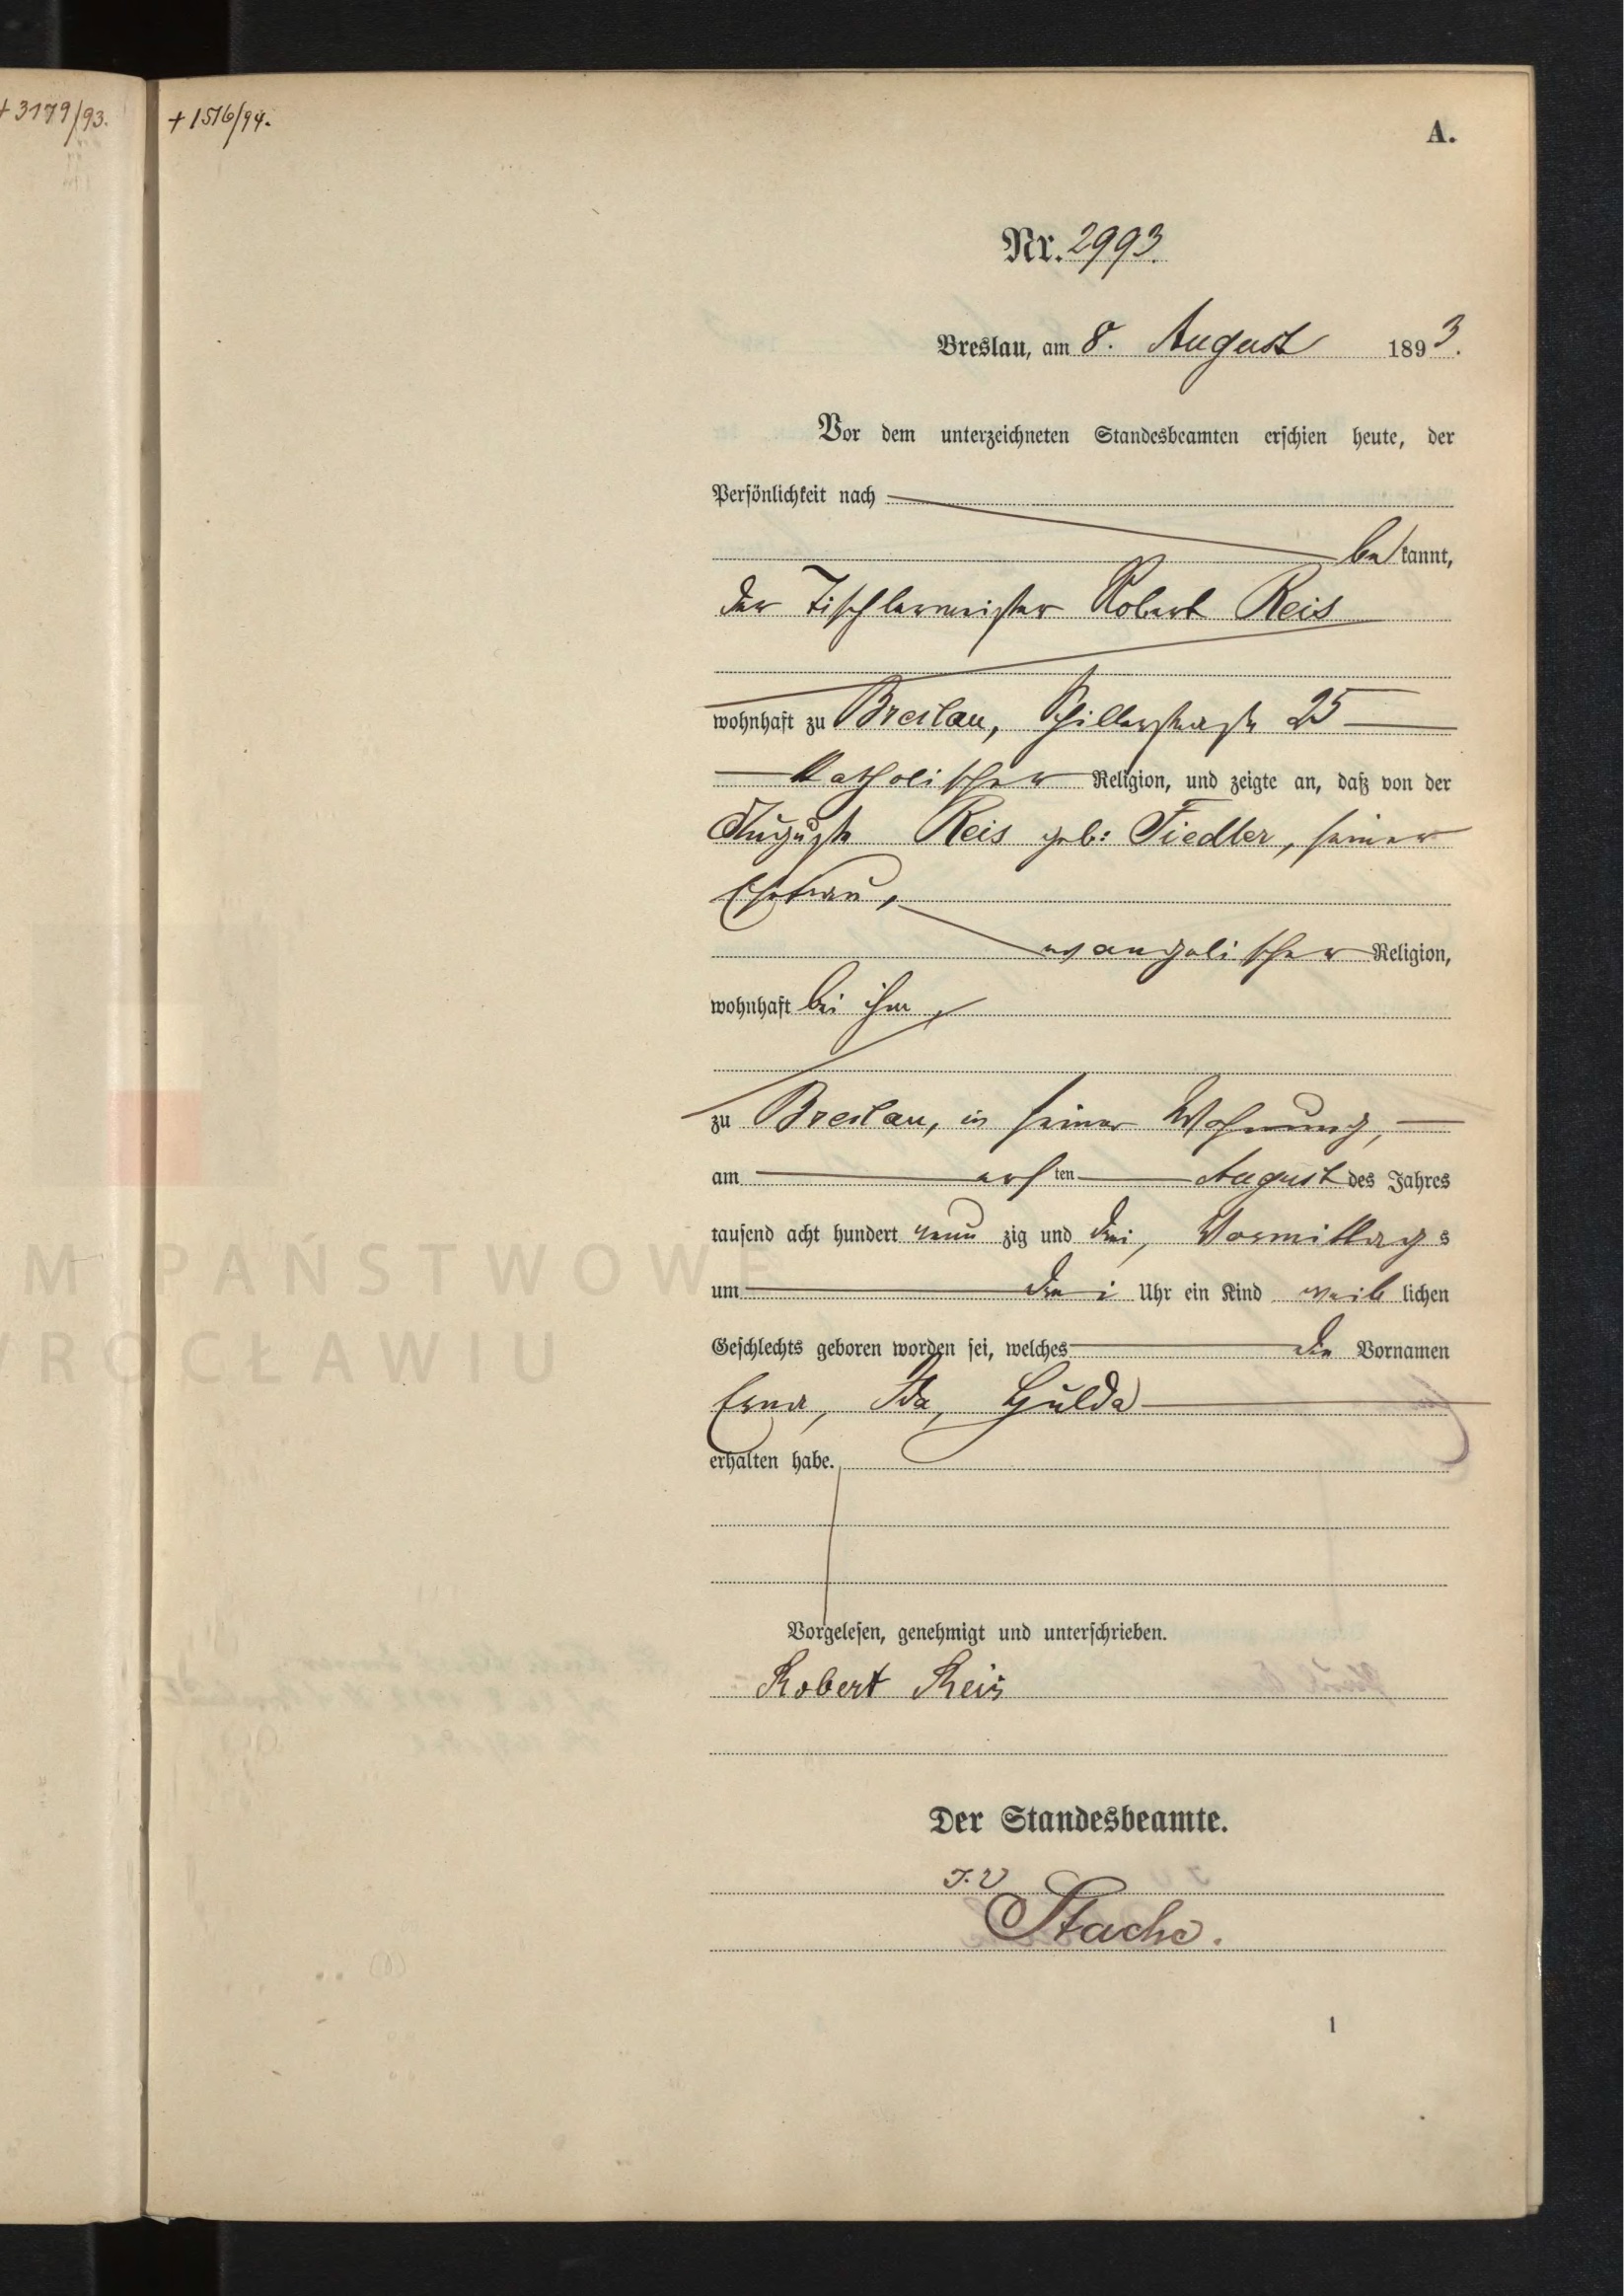 +3179/93.
+1516/94.
A.
Nr. 2993.
Breslau, am 8. August 1893.
Vor dem unterzeichneten Standesbeamten erschien heute, der
Persönlichkeit nach
bekannt,
der Tischlermeister Robert Reis
wohnhaft zu Breslau, Schillerstraße 25
katholischer Religion, und zeigte an, daß von der
Auguste Reis geb: Fiedler, seiner
Ehefrau,
evangelischer Religion,
wohnhaft bei ihm,
zu Breslau, in seiner Wohnung,
am ersten August des Jahres
tausend acht hundert neunzig und drei, Vormittags
um drei Uhr ein Kind weiblichen
Geschlechts geboren worden sei, welches die Vornamen
Erna, Ida, Hulda
erhalten habe.
Vorgelesen, genehmigt und unterschrieben.
Robert Reis
Der Standesbeamte.
J.V
Stache.
1
M PAŃSTWOWE
WROCŁAWIU